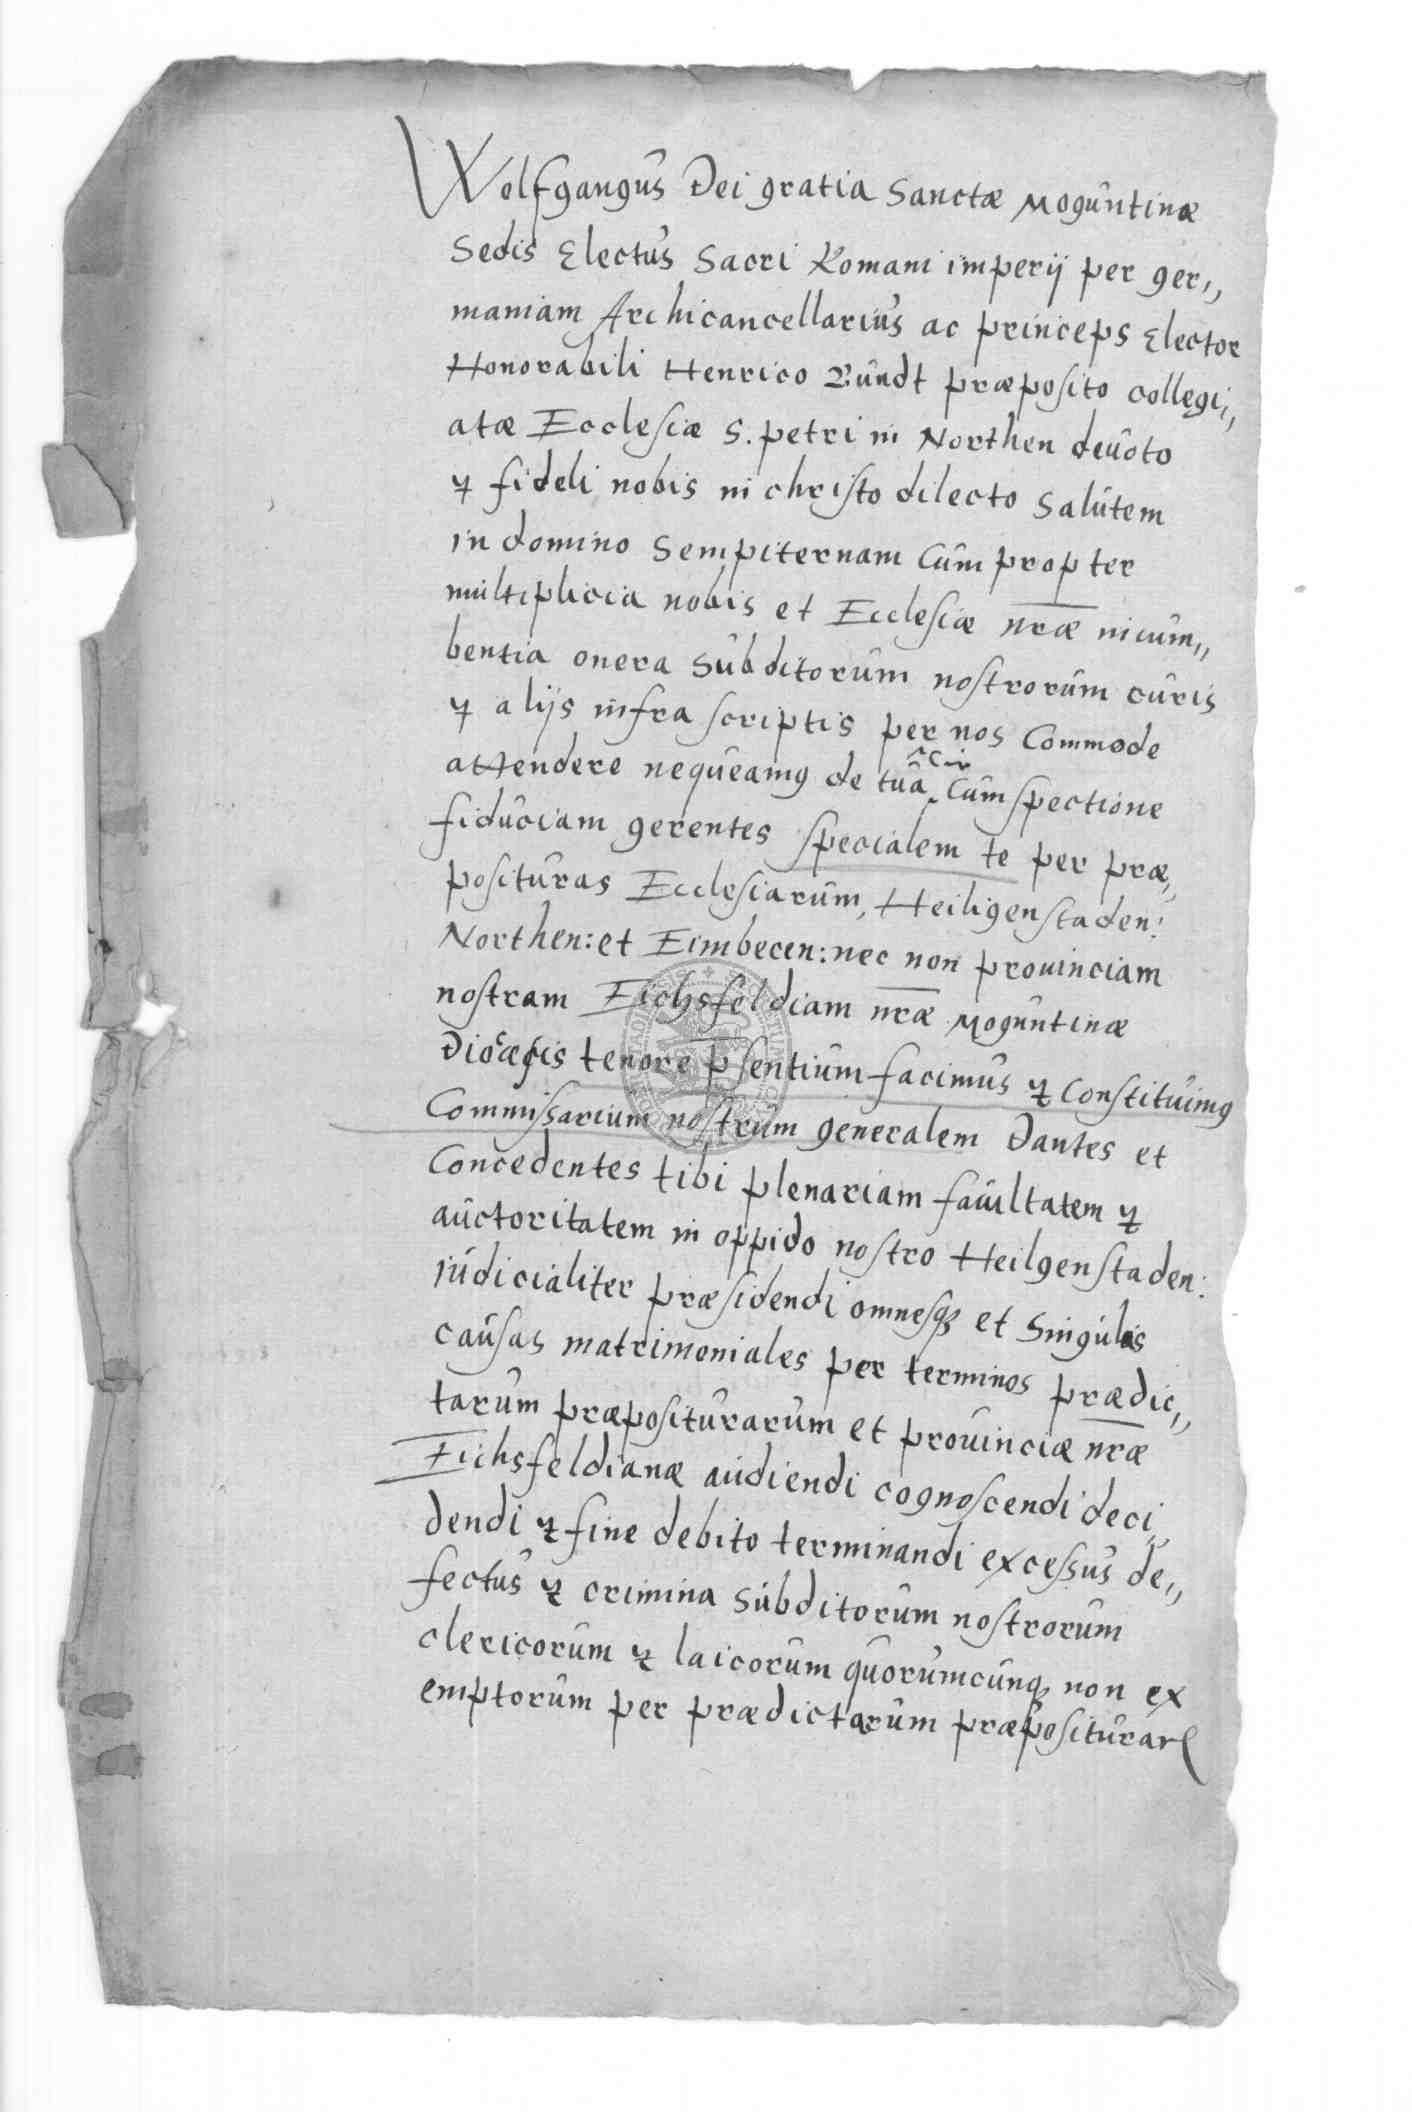 Wolfgangus Dei gratia Sanctæ Moguntinæ
Sedis Electus Sacri Romani imperij per ger,,
maniam Archicancellarius ac princeps Elector
Honorabili Henrico Bundt præposito collegi,,
atæ Ecclesiæ S. petri in Northen deuoto
& fideli nobis in christo dilecto Salutem
in domino Sempiternam Cum propter
multiplicia nobis et Ecclesiæ nræ incum,,
bentia onera Subditorum nostrorum curis
& alijs infra scriptis per nos Commode
attendere nequeamus de tua Circumspectione
fiduciam gerentes specialem te per præ,,
posituras Ecclesiarum, Heiligenstaden:
Northen: et Eimbecen: nec non prouinciam
nostram Eichsfeldiam nræ Moguntinæ
Diocæsis tenore psentium facimus & Constituimus
Commissarium nostrum generalem Dantes et
Concedentes tibi plenariam facultatem &
auctoritatem in oppido nostro Heilgenstaden:
iudicialiter præsidendi omnesq; et Singulas
causas matrimoniales per terminos prædic,,
tarum præpositurarum et prouinciæ nræ
Eichsfeldianæ audiendi cognoscendi deci,,
dendi & fine debito terminandi excessus de,,
fectus & crimina Subditorum nostrorum
clericorum & laicorum quorumcunq; non ex
emptorum per prædictarum præpositurar